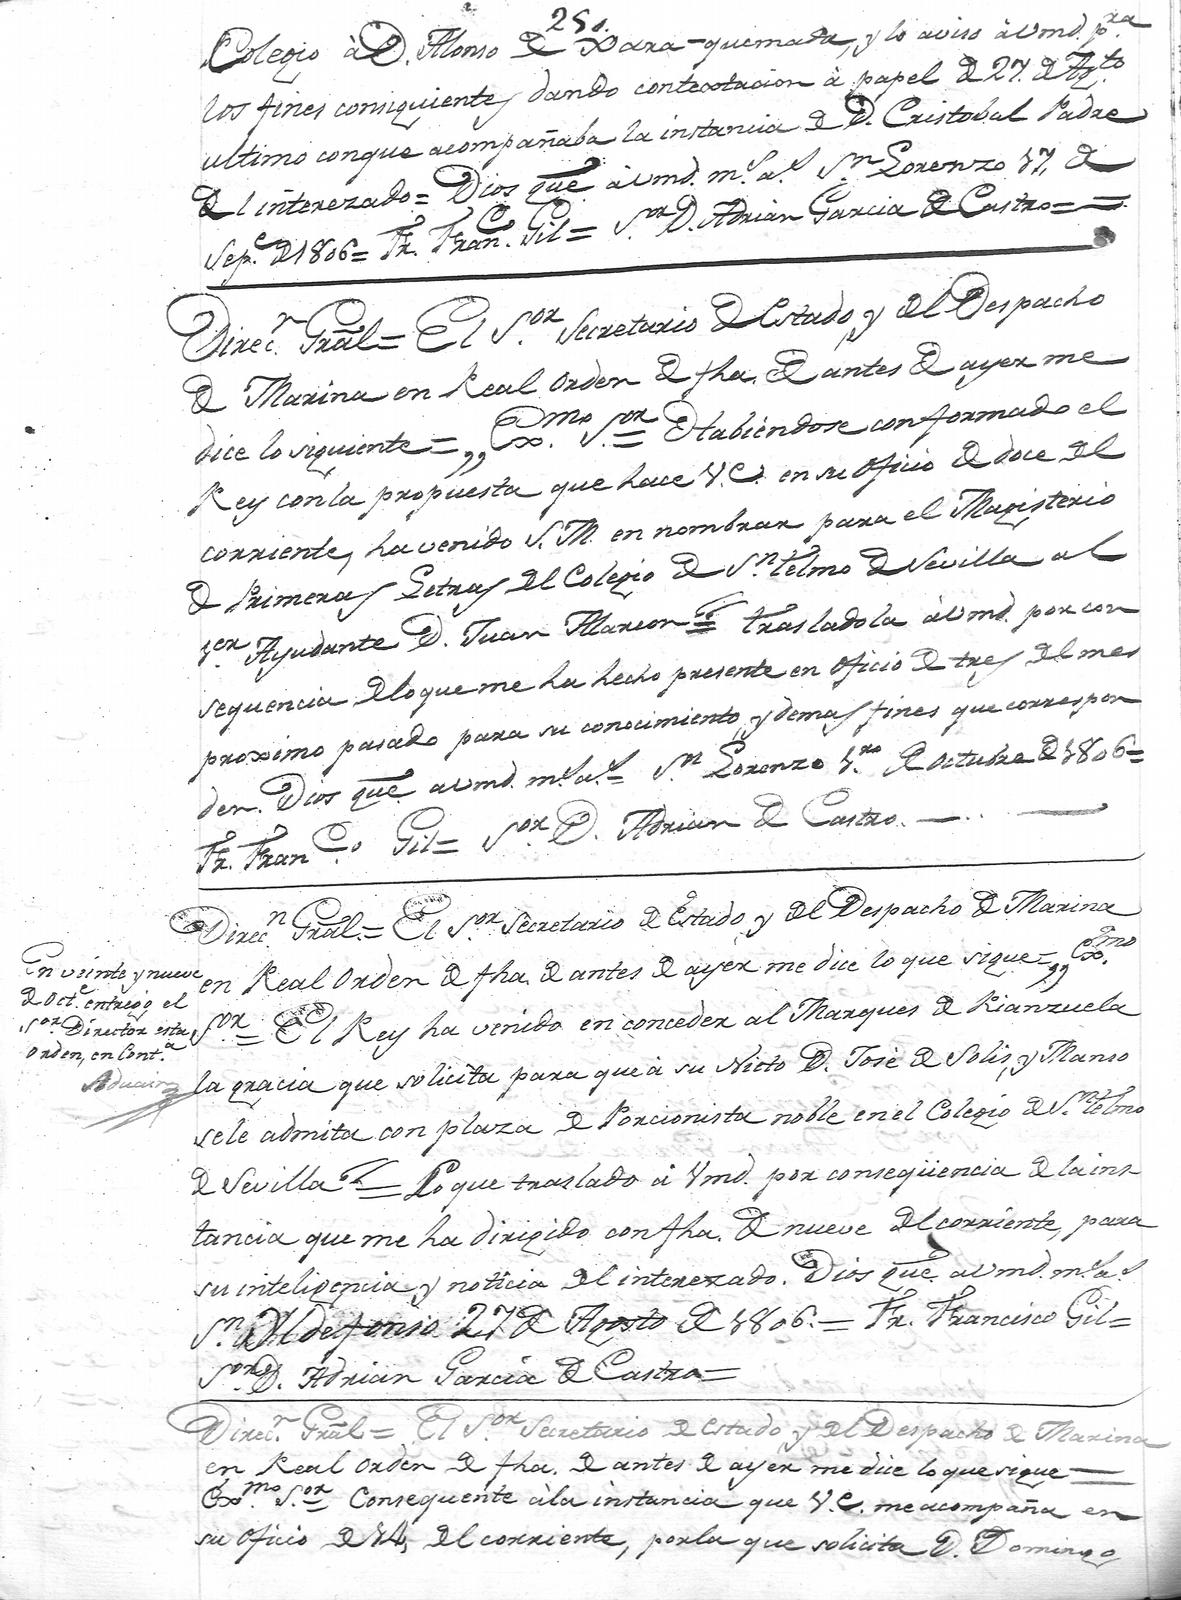 250.
Colegio à D. Alonso de Xara-quemada, y lo aviso à Vmd. p.ra
los fines consiguientes dando contextacion à papel de 27. de Ag.to
ultimo conque acompañaba la instancia de D. Cristobal Padre
del interezado= Dios gue. à Vmd. m.s a.s S.n Lorenzo 17, de
Sep.e de 1806= Fr. Fran.co Gil= S.or D. Adrian Garcia de Castro=
Direc.n Gräl= El S.or Secretario de Estado, y del Despacho
de Marina en Real Orden de fha. de antes de ayer me
dice lo siguiente= „Ex.mo S.or= Habiéndose conformado el
Rey con la propuesta que hace V.E. en su Oficio de doce del
corriente, ha venido S.M. en nombrar para el Magisterio
de Primeras Letras del Colegio de S.n Telmo de Sevilla al
1.er Ayudante D. Juan Alarcon"= trasladola à Vmd. por con
sequencia de lo que me ha hecho presente en Oficio de tres del mes
proximo pasado para su conocimiento, y demas fines que correspon
den. Dios gue. a Vmd. m.s a.s= S.n Lorenzo 1.ro de Octubre de 1806=
Fr. Fran.co Gil= S.or D. Adrian de Castro.
Direc.n Gräl.= El S.or Secretario de Estado, y del Despacho de Marina
en Real Orden de fha. de antes de ayer me dice lo que sigue= „Ex.mo
S.or= El Rey ha venido en conceder al Marques de Rianzuela
la gracia que solicita para que à su Nieto D. José de Solis, y Manso
sele admita con plaza de Porcionista noble en el Colegio de S.n Telmo
de Sevilla"= Lo que traslado à Vmd. por conseqüencia de la ins
tancia que me ha dirigido con fha. de nueve del corriente, para
su inteligencia, y noticia del interezado. Dios gue. a Vmd. m.s a.s
S.n Ildefonso 27 de Agosto de 1806.= Fr. Francisco Gil=
S.or D. Adrian Garcia de Castro=
En veinte y nueve
de Oct.e entregó el
S.or Director esta
Orden, en Cont.a
Direc.n Gräl= El S.or Secretario de Estado, y del Despacho de Marina
en Real Orden de fha. de antes de ayer me dice lo que sigue=
Ex.mo S.or= Consequente à la instancia que V.E. me acompaña en
su Oficio de 14, del corriente, por la que solicita D. Domingo